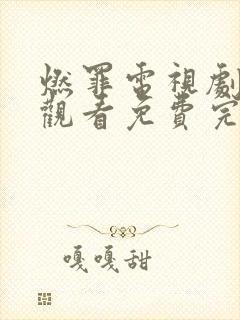 燃罪電視劇
觀看免費完
嘎嘎甜